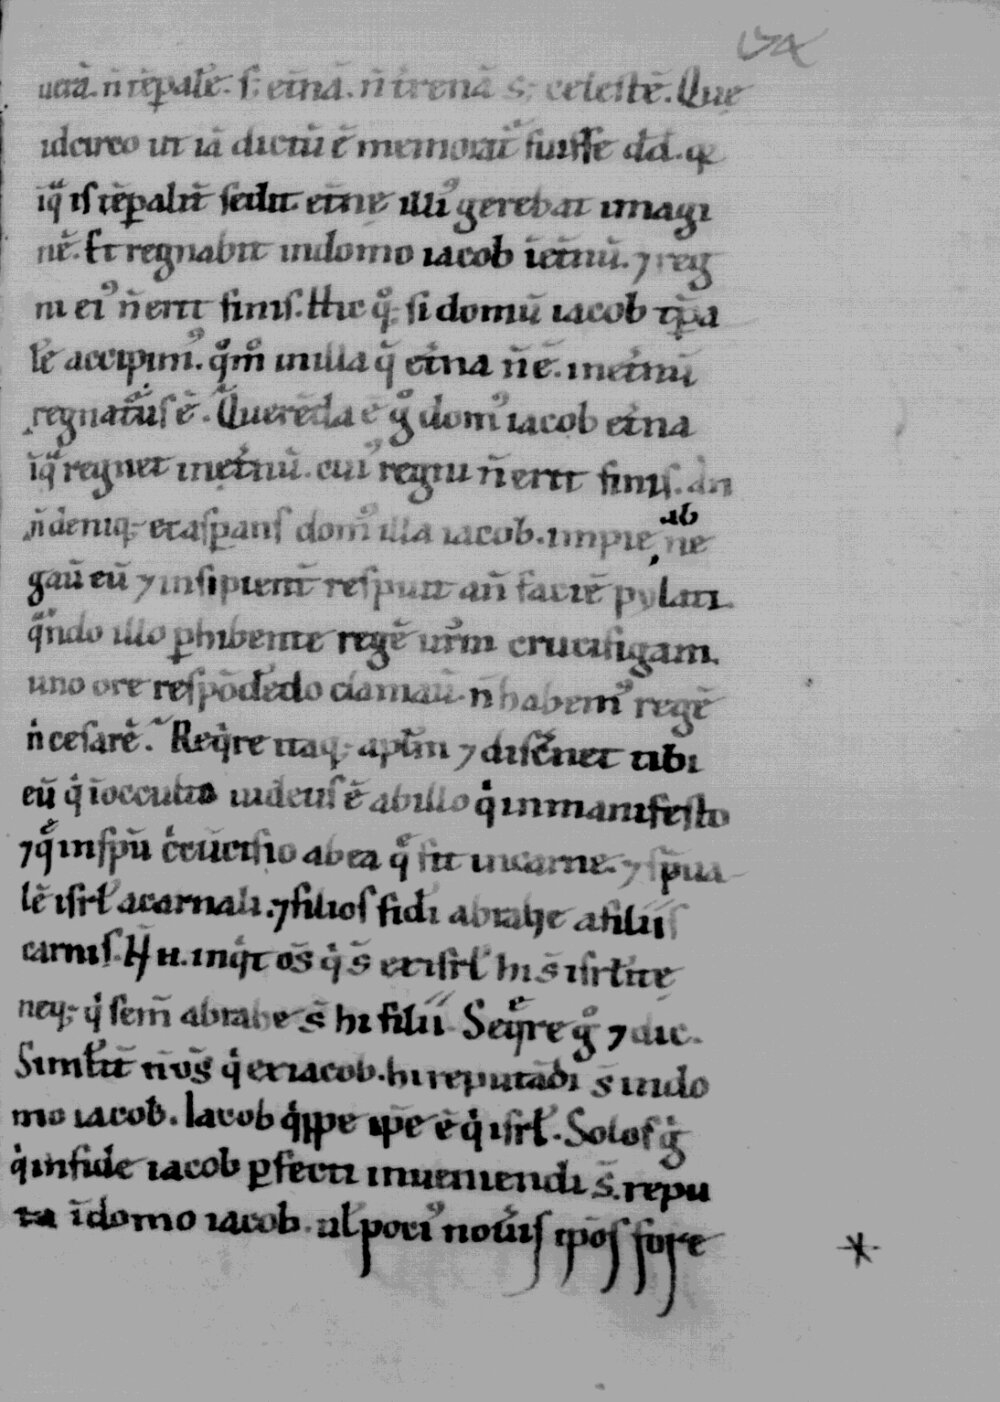 uerā. n̄ tēꝑale. s; et̄nā. n̄ t̄renā s; celestē. Quę
idcirco ut iā dictū ē memorat᷑ fuisse dd̄. q̄
īq̄ is tēꝑalit̄ sedit. et̄nę illi᷒ gerebat imagi
nē. Et regnabit indomo iacob īet̄nū. ⁊ reg
ni ei᷒ n̄ erit finis. Hic q̊; si domū iacob tꝑa
lē accipim᷒. qm̊ in illa q̄ et̄na n̄ ē. inet̄nū
regnatur᷒ ē. Querēda ē g̊ dom᷒ iacob et̄na
īq̄ regnet inet̄nū. cui᷒ regni n̄ erit finis. An
n̄ deniq; exasꝑans dom᷒ illa iacob. impie ab ne
gau̅ eū ⁊ insipient̄ respuit an̄ faciē pylati.
qn̄do illo ꝑhibente regē ur̄m crucifigam.
uno ore respōdēdo clamau̅. n̄ habem᷒ regē
n̄ cesarē. Req̇re itaq; aptm̄ ⁊ disc̄net tibi
eū q̇ īocculto iudeus ē abillo q̇ inmanifesto
⁊ q̄ inspū c̄cūcisio abea q̊ fit incarne. ⁊ sp̄ua
lē isrł acarnali. ⁊ filios fidei abrahe afiliis
carnis. H̄ n. inq̇t os̄ q̇ s̄ exisrł hi s̄ isrłitę
neq; q̇ sem̄ abrahe s̄ hi filii. Seq̄re g̊ ⁊ dic.
Similit̄ n̄ os̄ q̇ exiacob. hi reputādi s̄ indo
mo iacob. Iacob q̇ppe ip̄e ē q̇ isrł. Solos g̊
q̇ infide iacob ꝑfecti inueniendi s̄. repu
ta īdomo iacob. uł poci᷒ nou̅is ip̄os fore